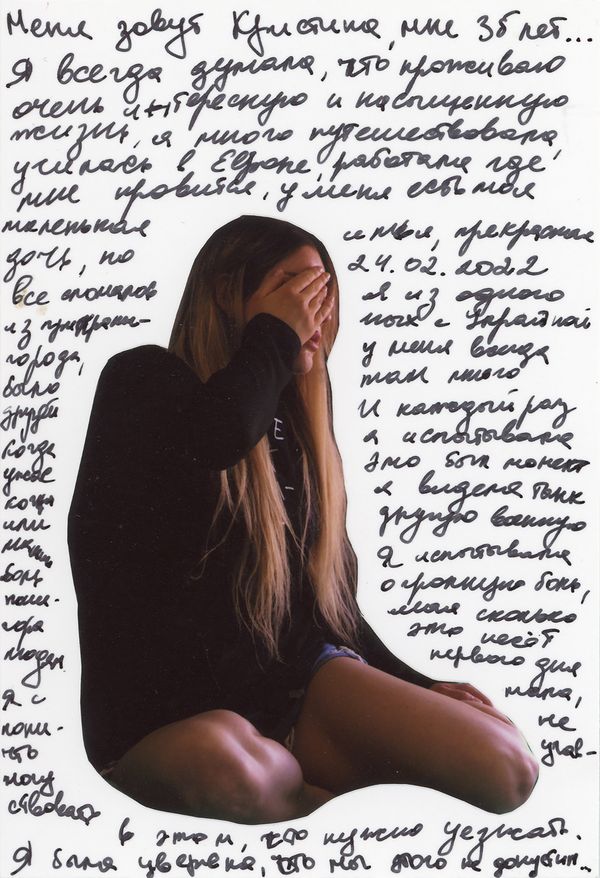 Меня зовут Кристина, мне 36 лет...
Я всегда думала, что проживаю
очень интересную и насыщенную
жизнь, я много путешествовала,
училась в Европе, работала где
мне нравится, у меня есть моя
маленькая семья, прекрасная
дочь, но 24.02.2022
все сломалось Я из одного
из пригранич- ных с Украиной
города, у меня всегда
было там много
друзей И каждый раз
когда я испытывала
ужас это был момент
когда я видела танк
или другую военную
Я испытывала
боль огромную боль,
пони- мая сколько
горя это несёт
людям
Я с первого дня
пони- мала,
что не
могу учав-
ствовать
в этом, что нужно уезжать.
Я была уверена, что мы этого не допустим...